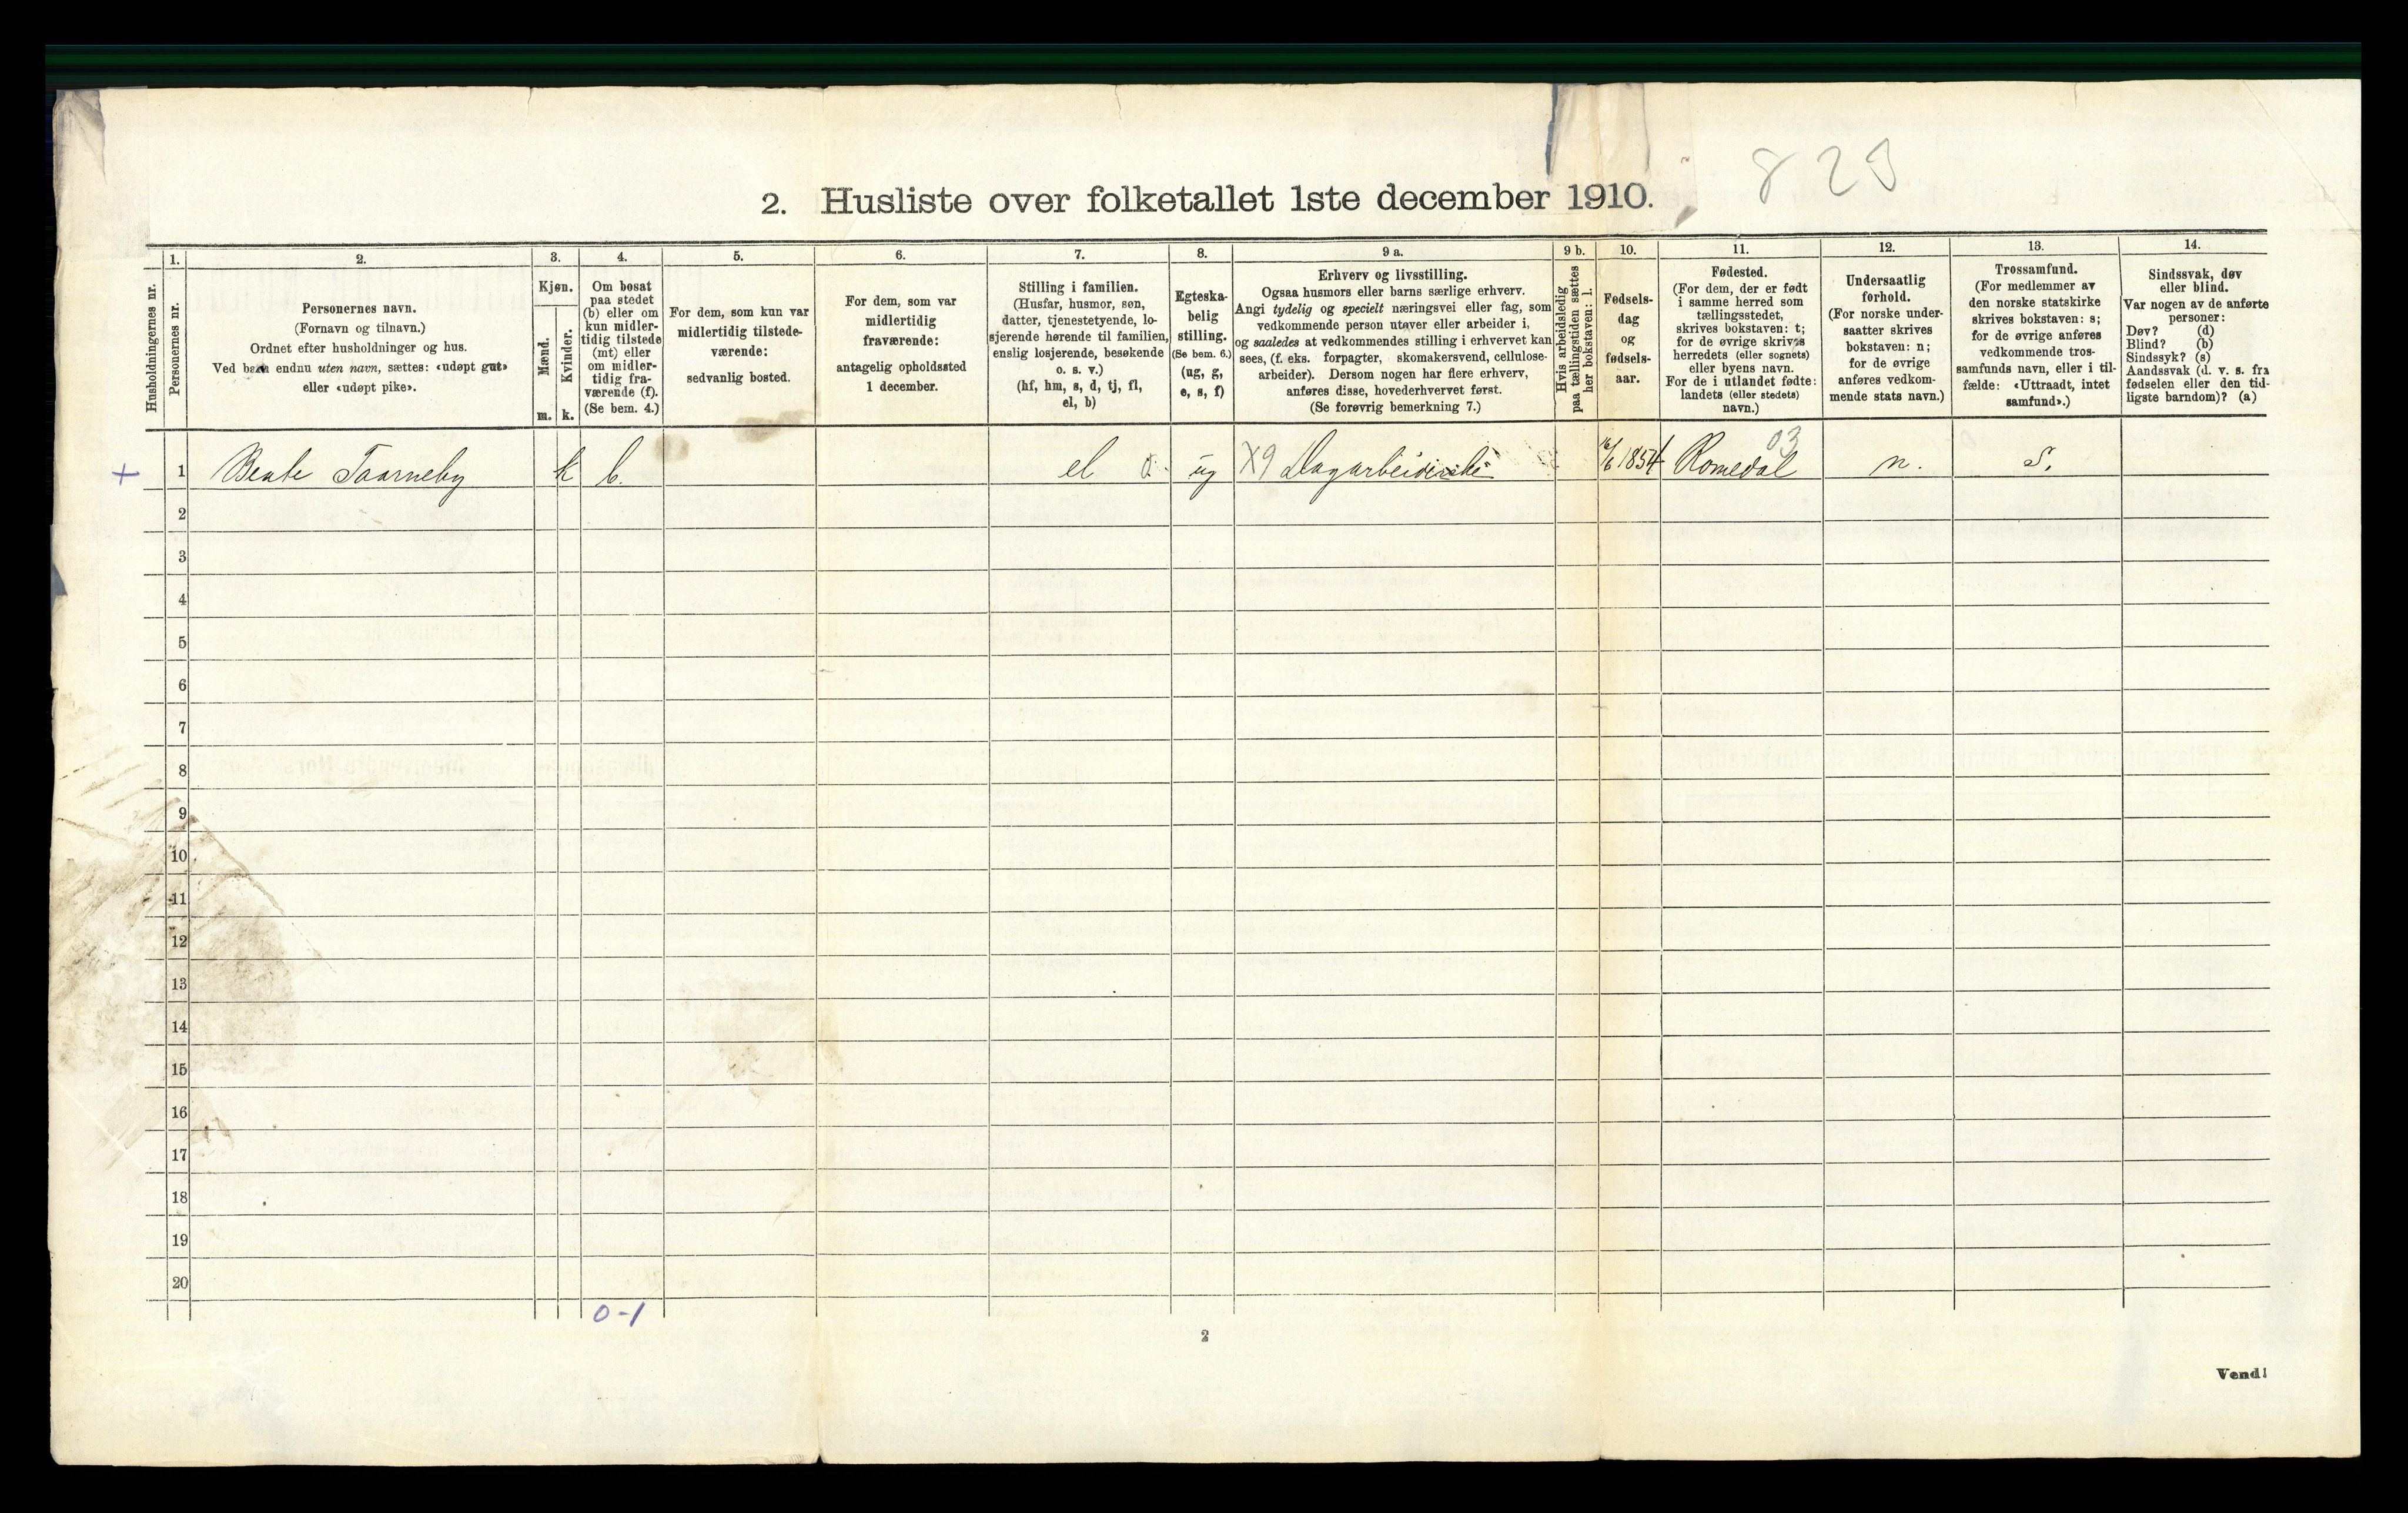 823
2. Husliste over folketallet 1ste december 1910.
Husholdningernes nr.
1.
Personernes nr.
2.
Personernes navn.
(Fornavn og tilnavn.)
Ordnet efter husholdninger og hus.
Ved barn endnu uten navn, sættes: «udøpt gut»
eller «udøpt pike».
3.
Kjøn.
Mænd.
Kvinder.
m. k.
4.
Om bosat
paa stedet
(b) eller om
kun midler-
tidig tilstede
(mt) eller
om midler-
tidig fra-
værende (f).
(Se bem. 4.)
5.
For dem, som kun var
midlertidig tilstede-
værende:
sedvanlig bosted.
6.
For dem, som var
midlertidig
fraværende:
antagelig opholdssted
1 december.
7.
Stilling i familien.
(Husfar, husmor, søn,
datter, tjenestetyende, lo-
sjerende hørende til familien,
enslig losjerende, besøkende
o. s. v.)
(hf, hm, s, d, tj, fl,
el, b)
8.
Egteska-
belig
stilling.
(Se bem. 6.)
(ug, g,
e, s, f)
9 a.
Erhverv og livsstilling.
Ogsaa husmors eller barns særlige erhverv.
Angi tydelig og specielt næringsvei eller fag, som
vedkommende person utøver eller arbeider i,
og saaledes at vedkommendes stilling i erhvervet kan
sees, (f. eks. forpagter, skomakersvend, cellulose-
arbeider). Dersom nogen har flere erhverv,
anføres disse, hovederhvervet først.
(Se forøvrig bemerkning 7.)
9 b.
Hvis arbeidsledig
paa tællingstiden sættes
her bokstaven: l.
10.
Fødsels-
dag
og
fødsels-
aar.
11.
Fødested.
(For dem, der er født
i samme herred som
tællingsstedet,
skrives bokstaven: t;
for de øvrige skrives
herredets (eller sognets)
eller byens navn.
For de i utlandet fødte:
landets (eller stedets)
navn.)
12.
Undersaatlig
forhold.
(For norske under-
saatter skrives
bokstaven: n;
for de øvrige
anføres vedkom-
mende stats navn.)
13.
Trossamfund.
(For medlemmer av
den norske statskirke
skrives bokstaven: s;
for de øvrige anføres
vedkommende tros-
samfunds navn, eller i til-
fælde: «Uttraadt, intet
samfund».)
14.
Sindssvak, døv
eller blind.
Var nogen av de anførte
personer:
Døv? (d)
Blind? (b)
Sindssyk? (s)
Aandssvak (d. v. s. fra
fødselen eller den tid-
ligste barndom)? (a)
+ 1 Beate Taarneby k b. el 0 ug X9 Dagarbeiderske 16/6 1854 Romedal 03 n. S.
2
3
4
5
6
7
8
9
10
11
12
13
14
15
16
17
18
19
20
0-1
2
Vend!